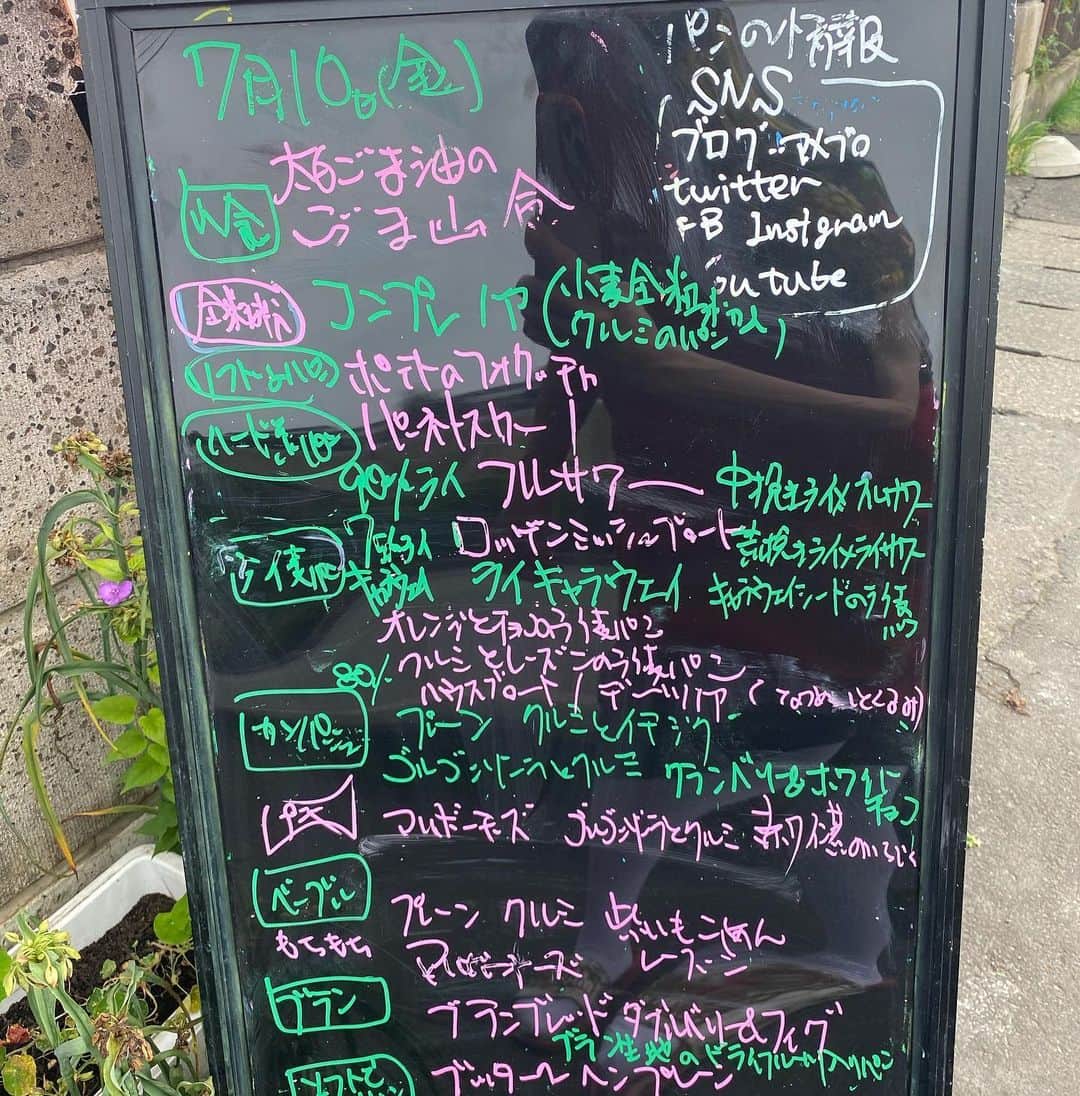 7月10日(金)
パンの情報
SNS
ブログ アメブロ
twitter
FB Instgram
outube
山食
太白ごま油の
ごま山食
全粒粉
コンプレノア(小麦全粒粉
クルミのパン)
ソフトなパン
ポテトのフォカッチャ
ハード系パン
パーネトスカーノ
90%ライ フルサワー 中挽きライ麦
ライ麦パン
ロッゲンミッシュブロート 荒挽きライ麦ライサワー
キャラウェイ ライキャラウェイ キャラウェイシードのライ麦
パン
オレンジとチョコのライ麦パン
クルミとレーズンのライ麦パン
80%
ハウスブロート/デーツノア(なつめやしとくるみ)
カンパーニュ
プレーン クルミとイチジク
ゴルゴンゾーラとクルミ クランベリー&ホワイト
チョコ
プチ
マルチーズ ゴルゴンゾーラとクルミ 赤ワイン煮のいちじく
ベーグル
もちもち
プレーン クルミ 紫いもこあん
レーズン
ブラン
ブランブレッド ダブルベリー&フィグ
ブラン生地のドライフルーツ入りパン
ソフトで
プレーン